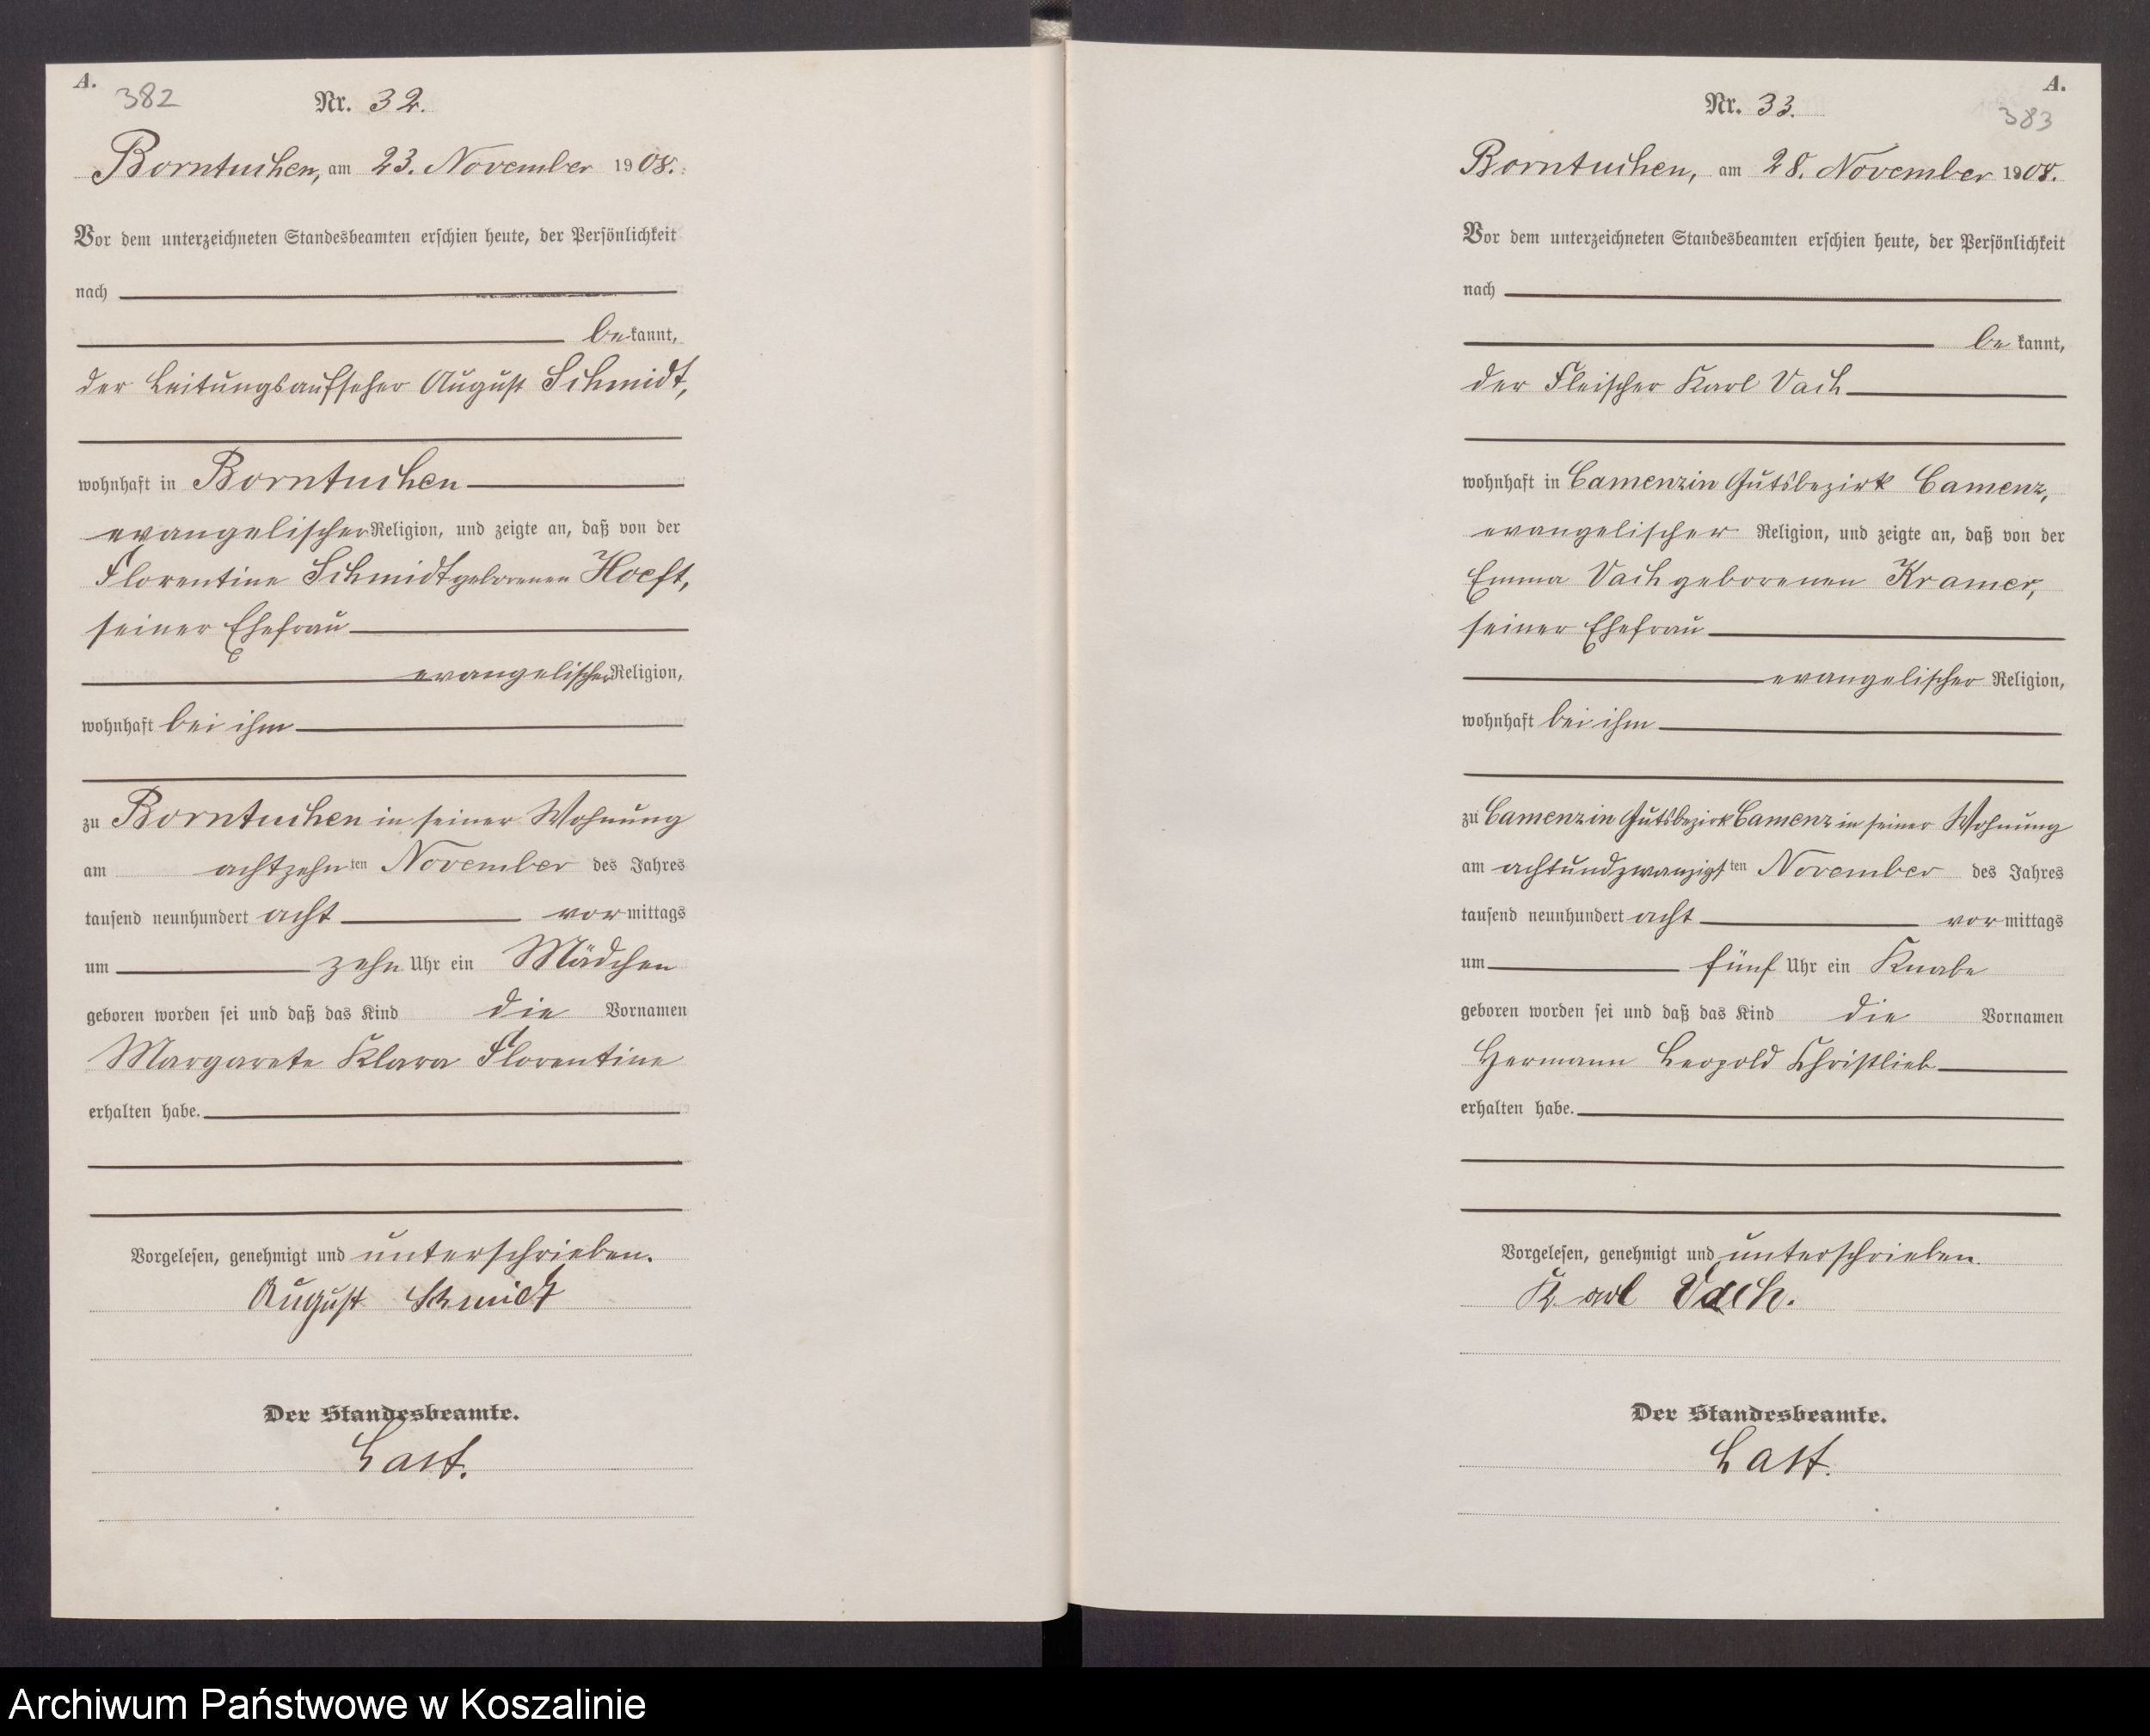 A.
382
Nr. 32.
Borntuchen, am 23. November 1908.
Vor dem unterzeichneten Standesbeamten erschien heute, der Persönlichkeit
nach
bekannt,
der Leitungsaufseher August Schmidt,
wohnhaft in Borntuchen
evangelischer Religion, und zeigte an, daß von der
Florentine Schmidt geborenen Hoeft,
seiner Ehefrau
evangelischer Religion,
wohnhaft bei ihm
zu Borntuchen in seiner Wohnung
am achtzehnten November des Jahres
tausend neunhundert acht vormittags
um zehn Uhr ein Mädchen
geboren worden sei und daß das Kind die Vornamen
Margarete Klara Florentine
erhalten habe.
Vorgelesen, genehmigt und unterschrieben.
August Schmidt
Der Standesbeamte.
Last.
A.
383
Nr. 33.
Borntuchen, am 28. November 1908.
Vor dem unterzeichneten Standesbeamten erschien heute, der Persönlichkeit
nach
bekannt,
der Fleischer Karl Vach
wohnhaft in Camenzin Gutsbezirk Camenz,
evangelischer Religion, und zeigte an, daß von der
Emma Vach geborenen Kramer,
seiner Ehefrau
evangelischer Religion,
wohnhaft bei ihm
zu Camenzin Gutsbezirk Camenz in seiner Wohnung
am achtundzwanzigsten November des Jahres
tausend neunhundert acht vormittags
um fünf Uhr ein Knabe
geboren worden sei und daß das Kind die Vornamen
Hermann Leopold Christlieb
erhalten habe.
Vorgelesen, genehmigt und unterschrieben.
Karl Vach.
Der Standesbeamte.
Last.
Archiwum Państwowe w Koszalinie